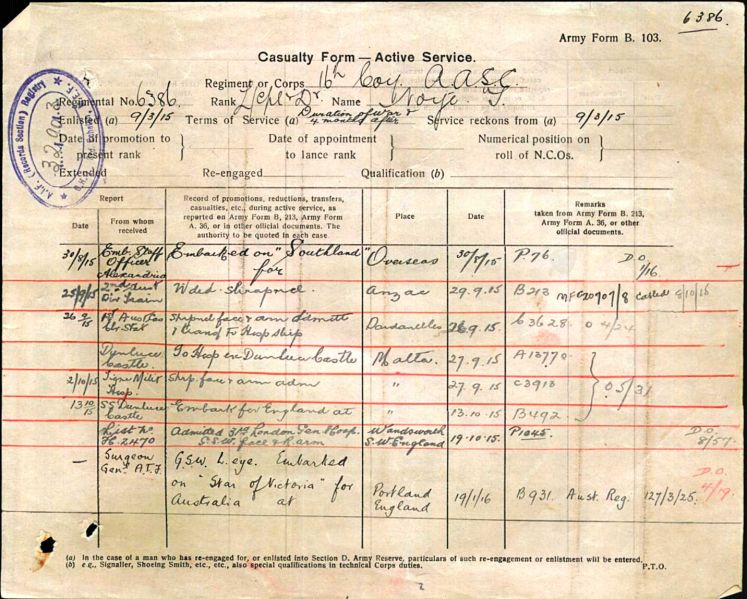 6386.
Army Form B. 103.
Casualty Form — Active Service.
Regiment or Corps 16th Coy. A.A.S.C.
Regimental No. 6386. Rank Name
Enlisted (a) 9/3/15 Terms of Service (a) Duration of War & 4 months after Service reckons from (a) 9/3/15
Date of promotion to present rank } Date of appointment to lance rank } Numerical position on roll of N.C.Os. }
Extended Re-engaged Qualification (b)
A.I.F. (Records Section) Registry
Report
Date
From whom received
Record of promotions, reductions, transfers, casualties, etc., during active service, as reported on Army Form B, 213, Army Form A. 36, or in other official documents. The authority to be quoted in each case.
Place
Date
Remarks taken from Army Form B. 213, Army Form A. 36, or other official documents.
30/8/15 Emb. Staff Officer Alexandria Embarked on "Southland" for Overseas P.76. D.O. 7/16.
2nd Aust Div Train Wded. Shrapnel. Anzac 29.9.15. B213 8/10/16
Shrpnel face & arm admitted & transf To Hosp Ship Dardanelles C3628. O 4/24
Dunluce Castle. To Hosp ex Dunluce Castle Malta. 27.9.15. A13770.
2/10/15 Tigne Milit Hosp. Shrp. face & arm adm " 27.9.15. C3913 } O 5/31
13 10/15 SS Dunluce Castle Embark for England at " 13.10.15. B492
List No H.2470 Admitted 3rd London Gen Hosp. G.S.W. face & R arm Wandsworth S.W. England 19.10.15. P1045. D.O. 8/57.
— Surgeon Gen. A.I.F. GSW L. eye. Embarked on "Star of Victoria" for Australia at Portland England 19/1/16 B931. Aust. Reg. 127/3/25. D.O. 4/19.
(a) In the case of a man who has re-engaged for, or enlisted into Section D. Army Reserve, particulars of such re-engagement or enlistment will be entered.
(b) e.g., Signaller, Shoeing Smith, etc., etc., also special qualifications in technical Corps duties. P.T.O.
2